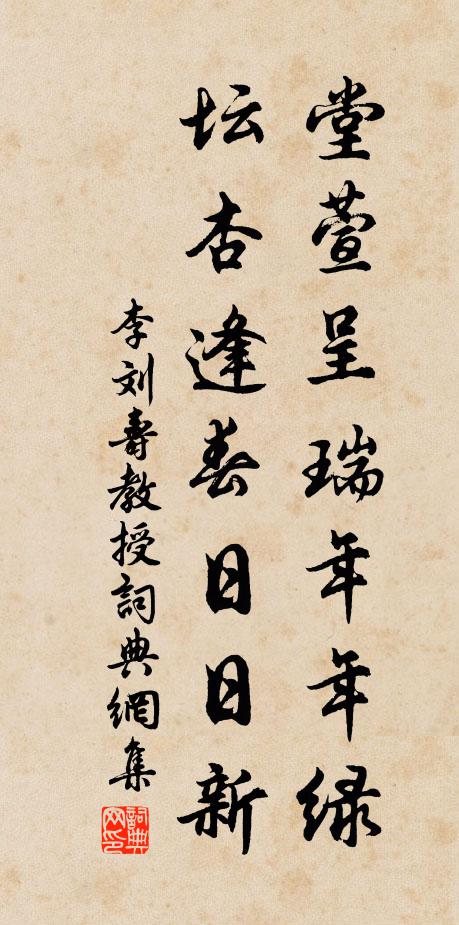 堂萱呈瑞年年绿
坛杏逢春日日新
李刘寿教授詞典網集
詞典网印